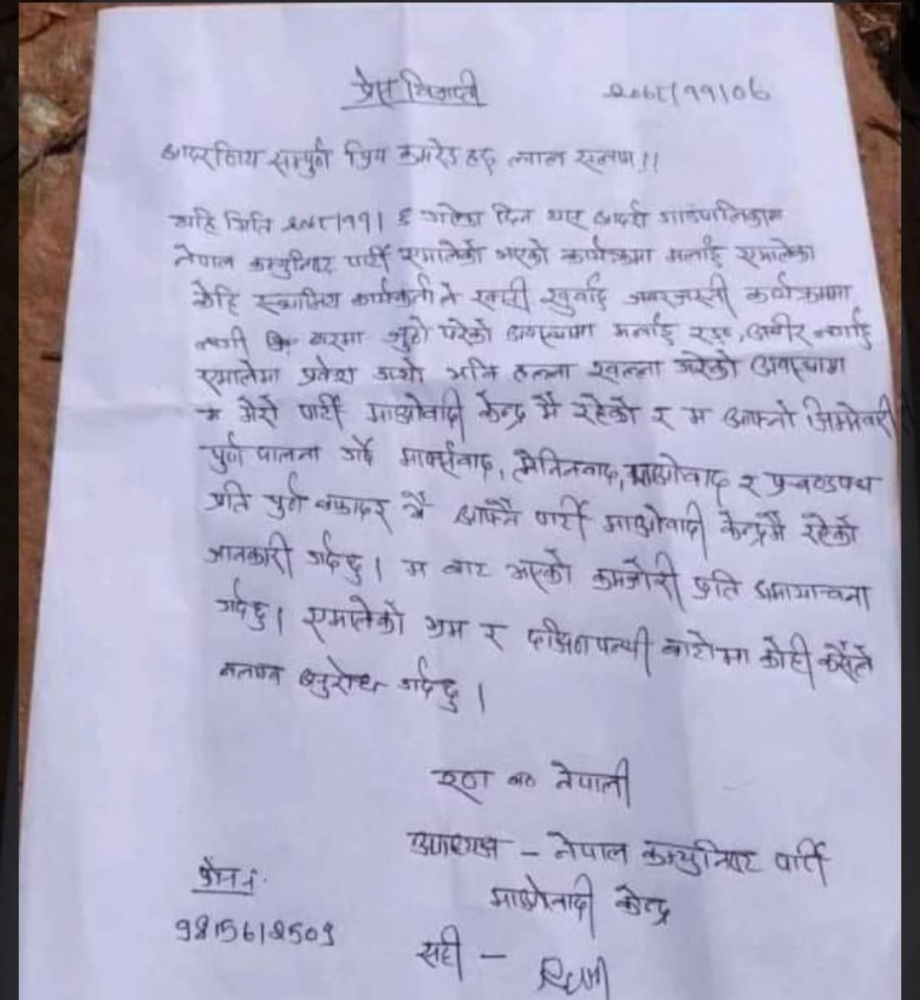 प्रेस विज्ञप्ती २०७८/११/०७
आदरणिय सम्पुर्ण प्रिय कमरेड हरु लाल सलाम !!
यहि मिति २०७८/११/ ६ गतेका दिन भएर आदर्श गाउंपालिकामा
नेपाल कम्युनिष्ट पार्टी एमालेको भएको कार्यक्रममा मलाई एमालेका
केहि स्थानिय कार्यकर्ता ले रक्सी खुवाई जबरजस्ती कार्यक्रममा
लगी घरमा जुठो परेको अवस्थामा मलाई रङ्ग, अबीर लगाई
एमालेमा प्रवेश गर्‍यो भनि हल्ला खल्ला गरेको अवस्थामा
म मेरो पार्टी माओवादी केन्द्र मै रहेको र म आफ्नो जिम्मेवारी
पुर्ण पालना गर्दै मार्क्सवाद, लेनिनवाद, माओवाद र प्रचण्डपथ
प्रति पुर्ण वफादार भै आफ्नै पार्टी माओवादी केन्द्रमै रहेको
जानकारी गर्दछु । म बाट भएको कमजोरी प्रति क्षमायाचना
गर्दछु । एमालेको भ्रम र दक्षिणपन्थी बाटोमा कोही कसैले
नलाग्न अनुरोध गर्दछु ।
नेपाली
अध्यक्ष – नेपाल कम्युनिष्ट पार्टी
माओवादी केन्द्र
फोन नं.
9815612509
सही –